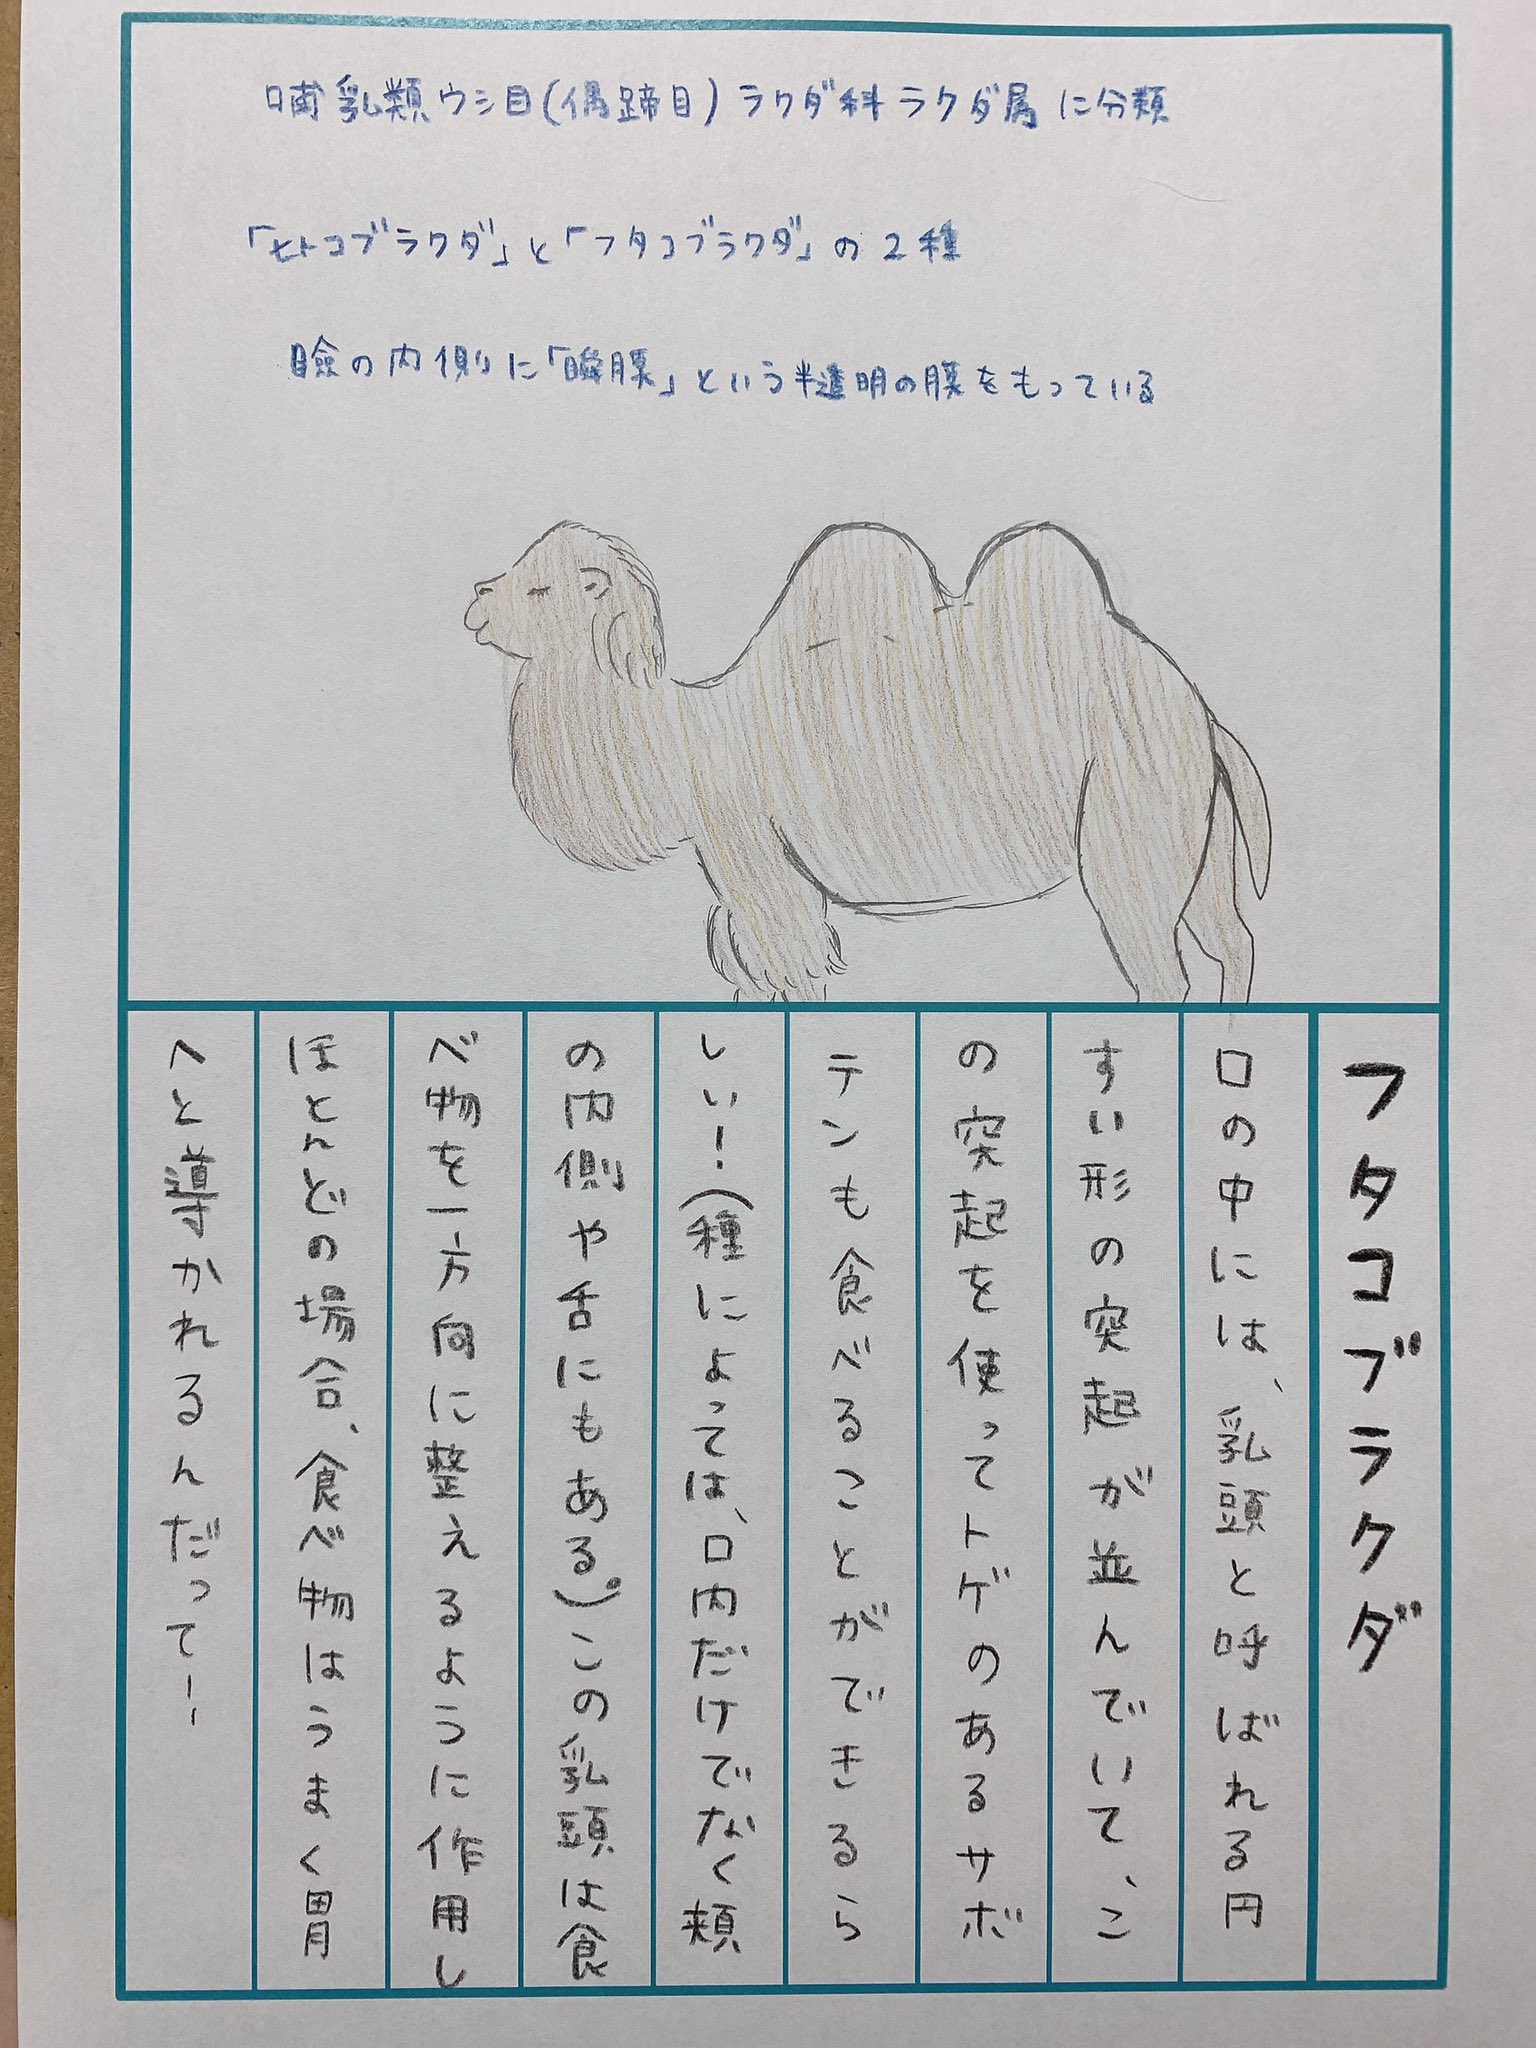 哺乳類ウシ目(偶蹄目)ラクダ科ラクダ属に分類
「ヒトコブラクダ」と「フタコブラクダ」の2種
瞼の内側に「瞬膜」という半透明の膜をもっている
フタコブラクダ
口の中には、乳頭と呼ばれる円
すい形の突起が並んでいて、こ
の突起を使ってトゲのあるサボ
テンも食べることができるら
しい!(種によっては、口内だけでなく頬
の内側や舌にもある。)この乳頭は食
べ物を一方向に整えるように作用し
ほとんどの場合、食べ物はうまく胃
へと導かれるんだってー